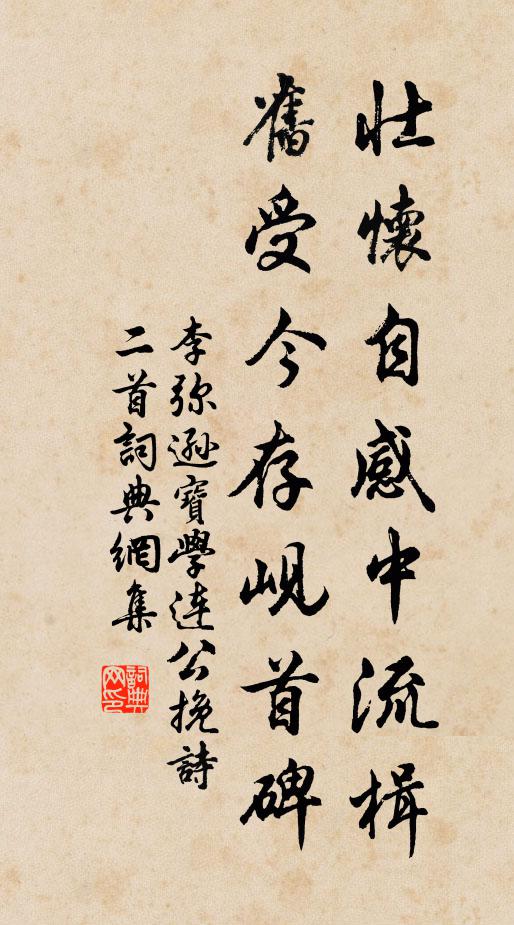 壮懷自感中流楫
舊受今存峴首碑
李弥遜寶學連公挽詩
二首詞典網集
詞典网印